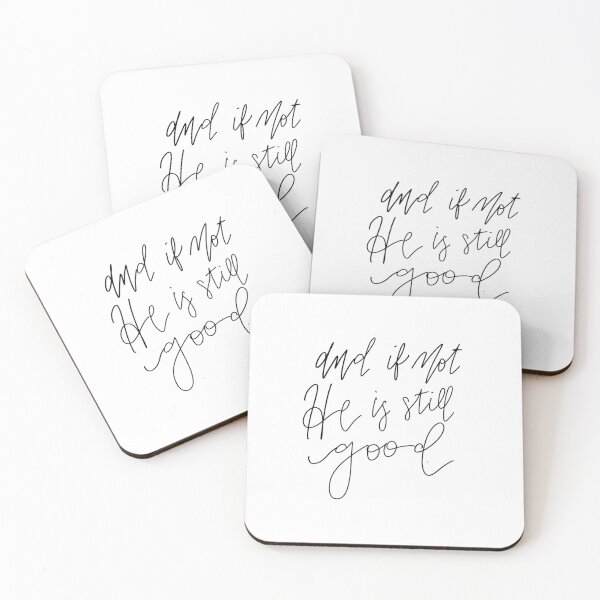 and if not
He is still
and if not
He is still
good
and if not
He is still
good
and if not
He is still
good